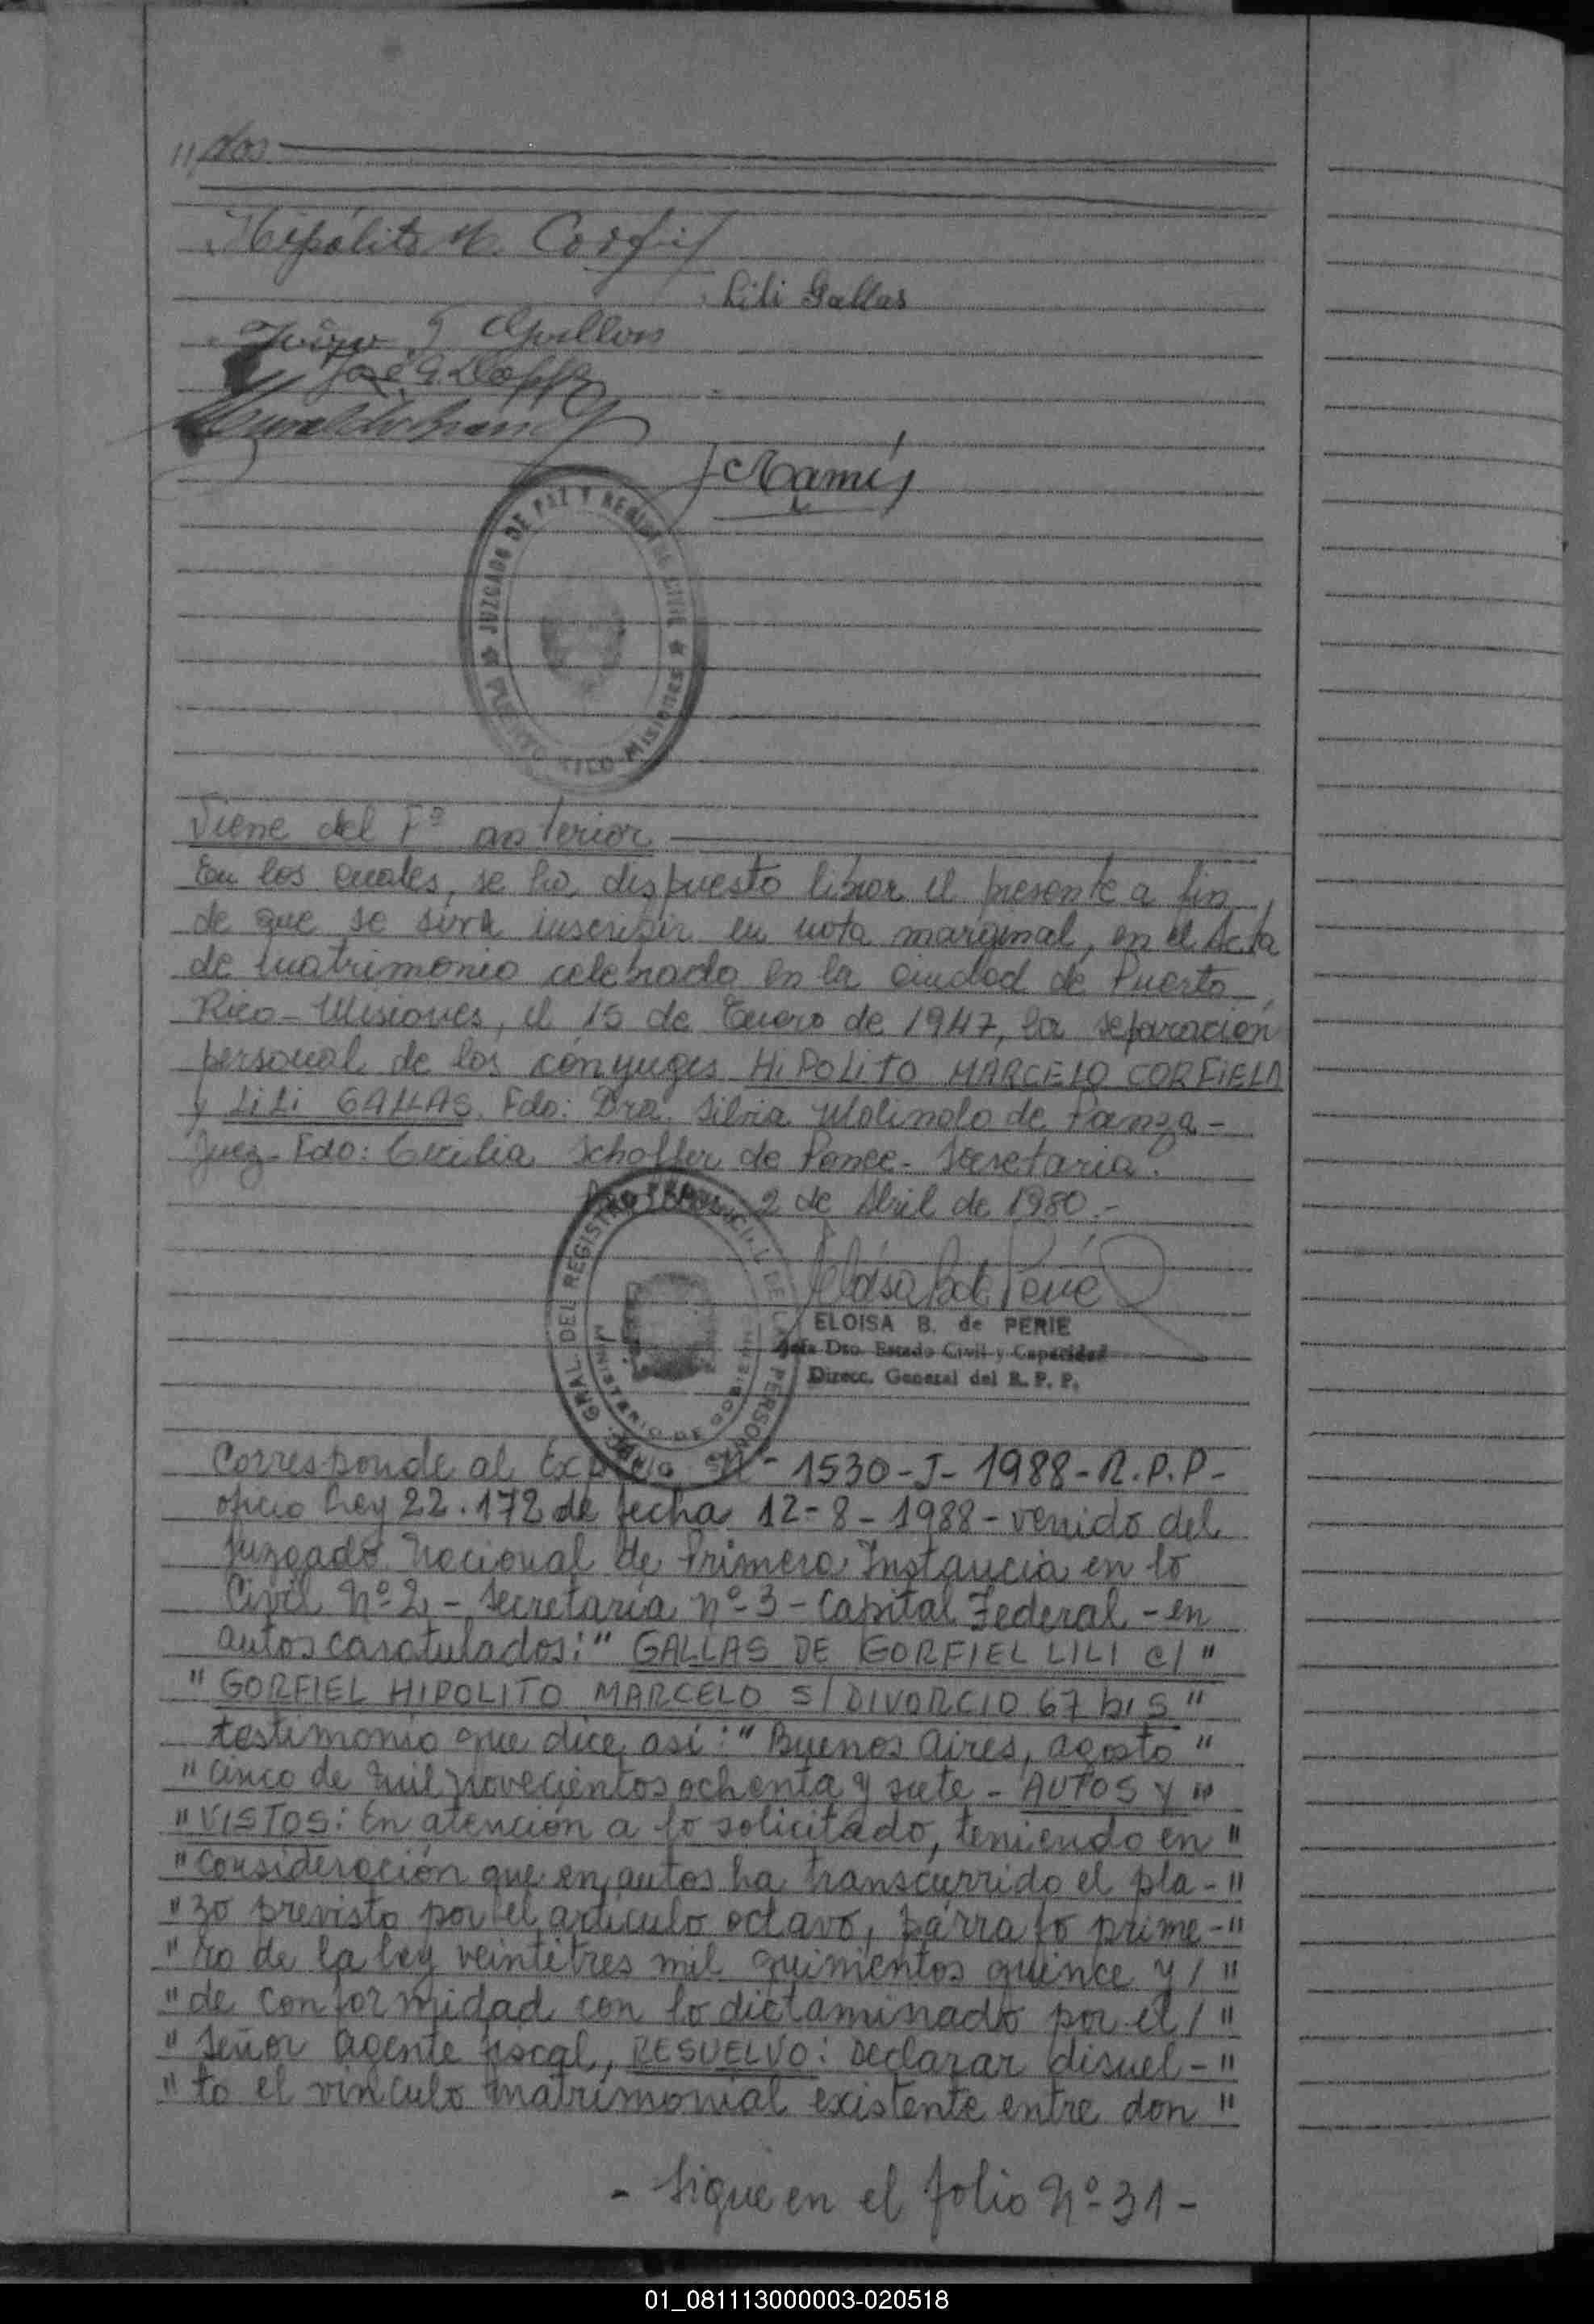 //dos
Hipólito M. Corfiel
Lili Gallas
José G.
JUZGADO DE PAZ Y REGISTRO CIVIL
PUERTO RICO Misiones
Viene del Fº anterior
En los cuales, se ha dispuesto librar el presente a fin,
de que se sirva inscribir en nota marginal, en el Acta
de matrimonio celebrado en la ciudad de Puerto
Rico - Misiones, el 15 de Enero de 1947, la separación
personal de los cónyuges HiPOLiTO MARCELO CORFIELD
y LiLi GALLAS. Fdo: Dra. Silvia Molinolo de Panza -
Juez - Fdo: Cecilia Schoffer de Ponce - Secretaria.
2 de Abril de 1980.-
ELOISA B. de PERIE
Jefa Dto. Estado Civil y Capacidad
Direcc. General del R. P. P.
GRAL DEL REGISTRO PROVINCIAL DE LAS PERSONAS
MINISTERIO DE GOBIERNO
Corresponde al Expte Nº 1530-J-1988-R.P.P-
oficio Ley 22.172 de fecha 12-8-1988- venido del
Juzgado Nacional de Primera Instancia en lo
Civil Nº 2 - Secretaría Nº 3 - Capital Federal - en
autos caratulados: " GALLAS DE GORFIEL LILI c/ "
" GORFIEL HIPOLITO MARCELO S/ DIVORCIO 67 bis "
testimonio que dice así: " Buenos Aires, agosto "
" cinco de mil novecientos ochenta y siete - AUTOS Y "
" VISTOS: En atención a lo solicitado, teniendo en "
" consideración que en autos ha transcurrido el pla- "
" zo previsto por el artículo octavo, párrafo prime- "
" ro de la ley veintitres mil quinientos quince y / "
" de conformidad con lo dictaminado por el / "
" Señor Agente fiscal, RESUELVO: Declarar disuel- "
" to el vínculo matrimonial existente entre don "
- Sigue en el folio Nº 31 -
01_081113000003-020518